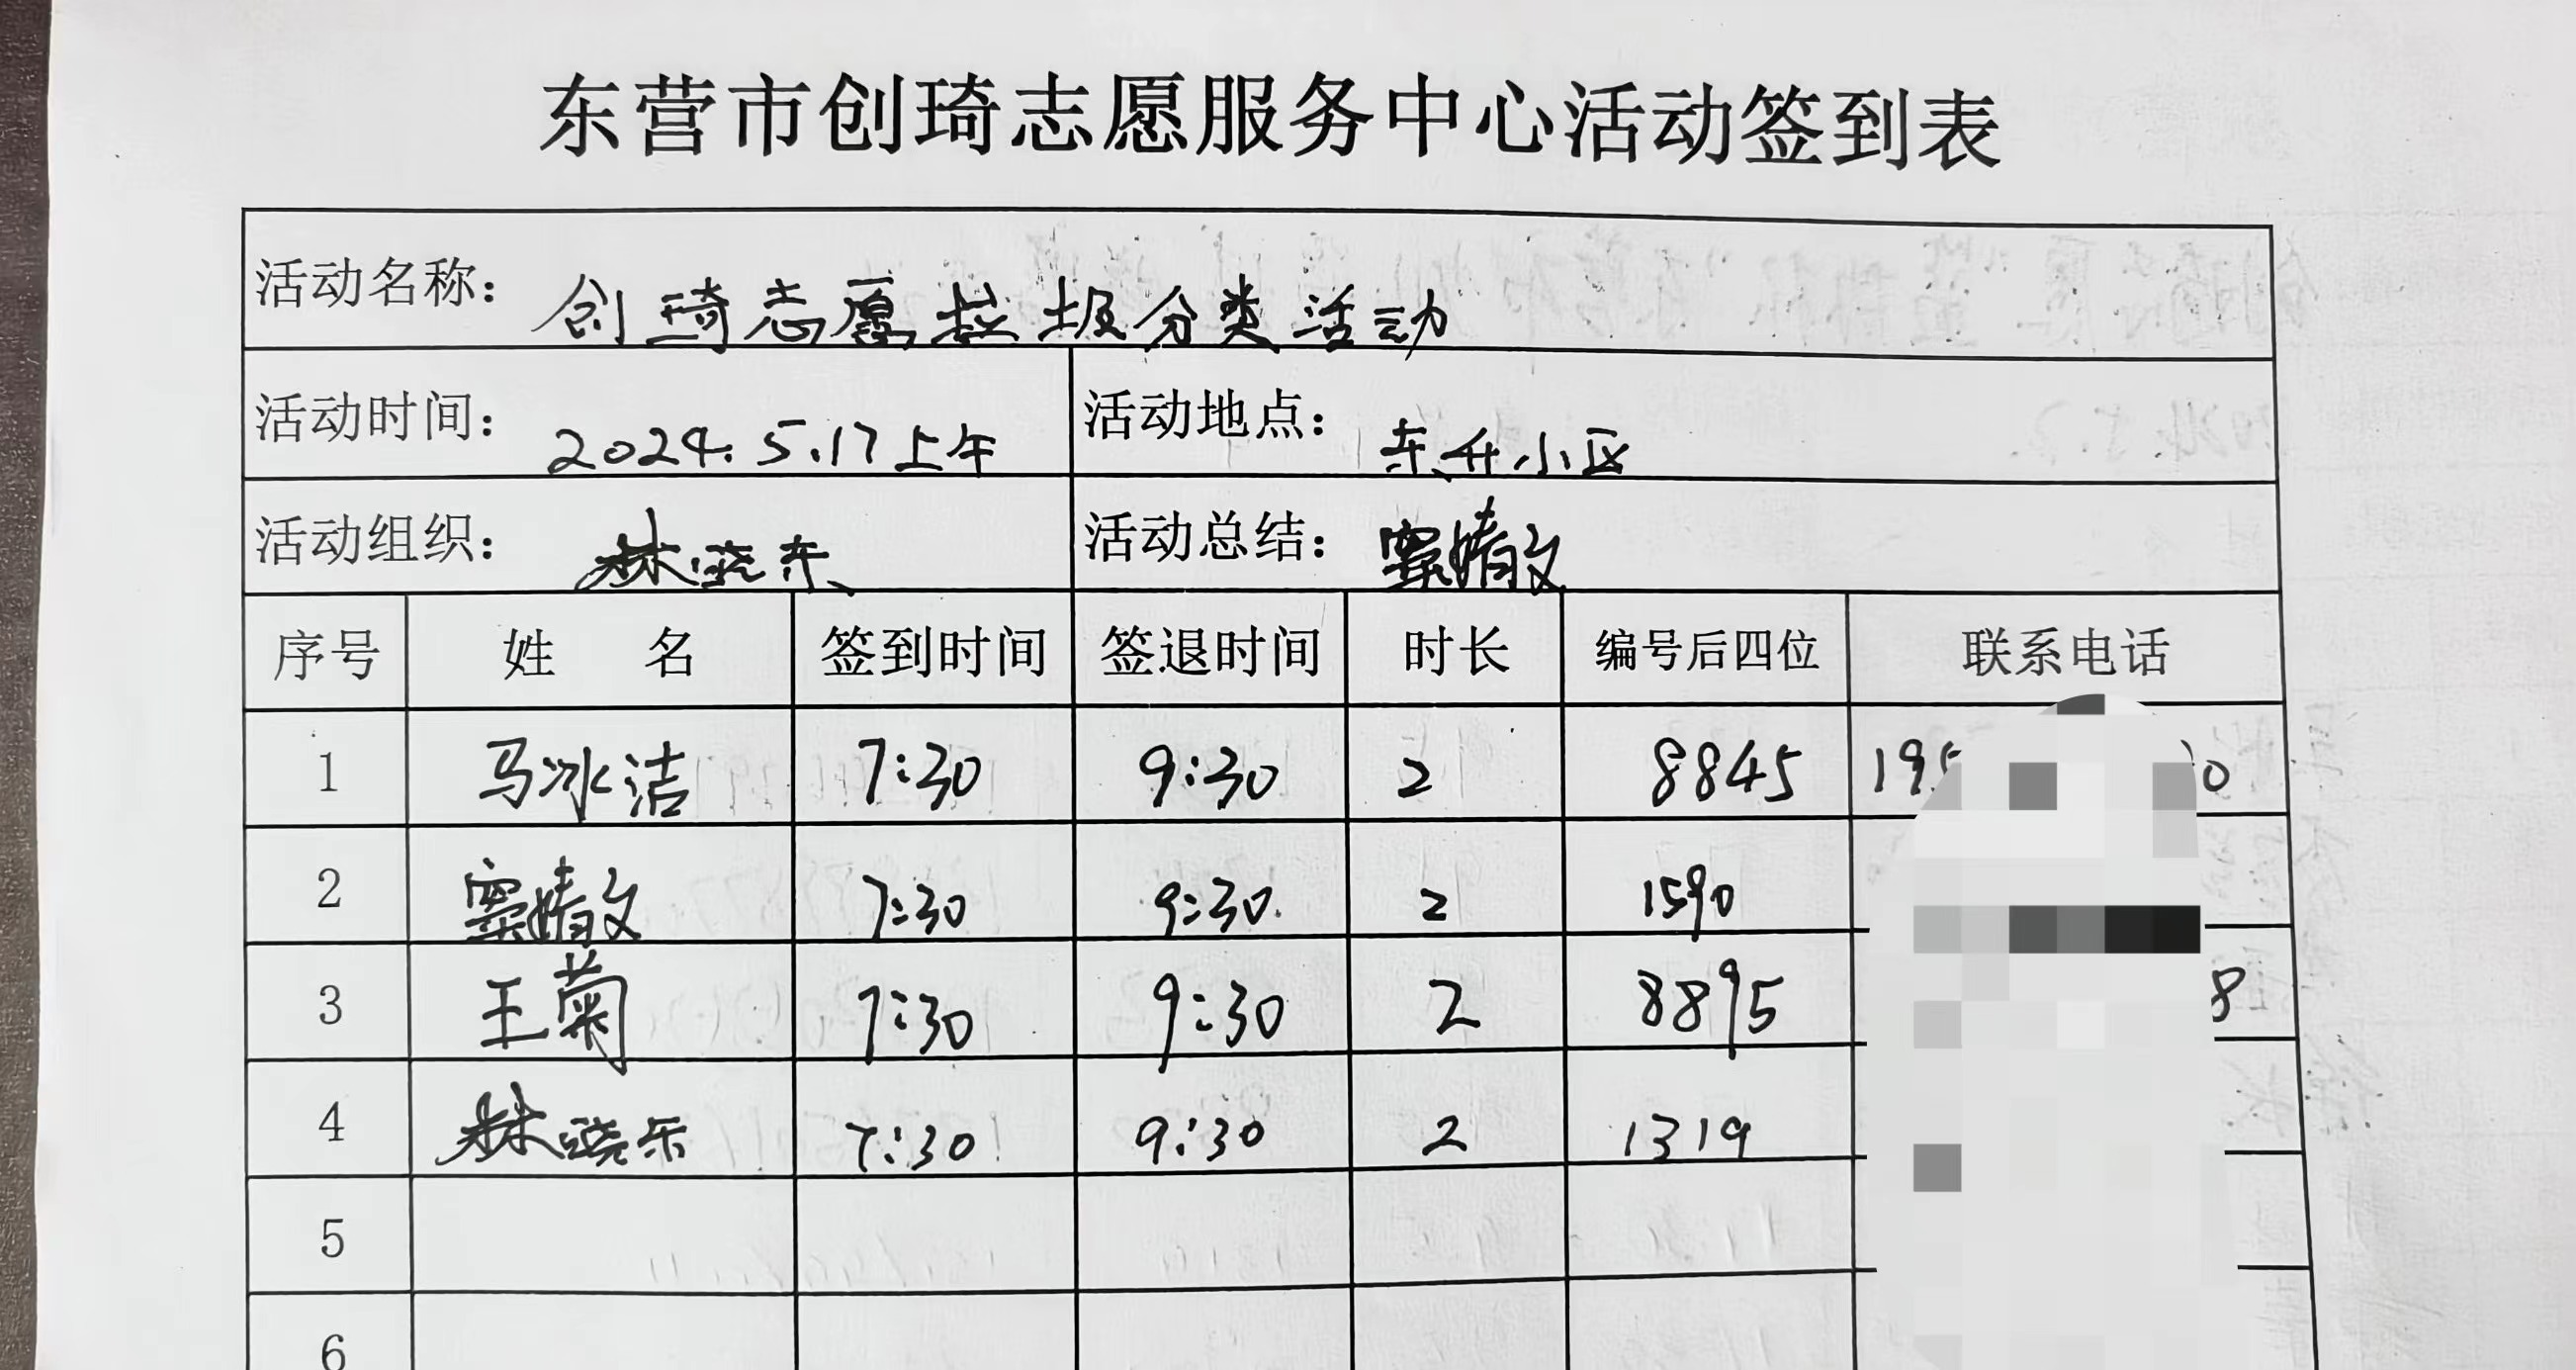 东营市创琦志愿服务中心活动签到表
活动名称：创琦志愿垃圾分类活动
活动时间：2024.5.17上午 活动地点：东升小区
活动组织：林晓东 活动总结：窦婧文
序号 姓 名 签到时间 签退时间 时长 编号后四位 联系电话
1 马冰洁 7:30 9:30 2 8845 195 0
2 窦婧文 7:30 9:30 2 1590
3 王菊 7:30 9:30 2 8895 8
4 林晓东 7:30 9:30 2 1319
5
6